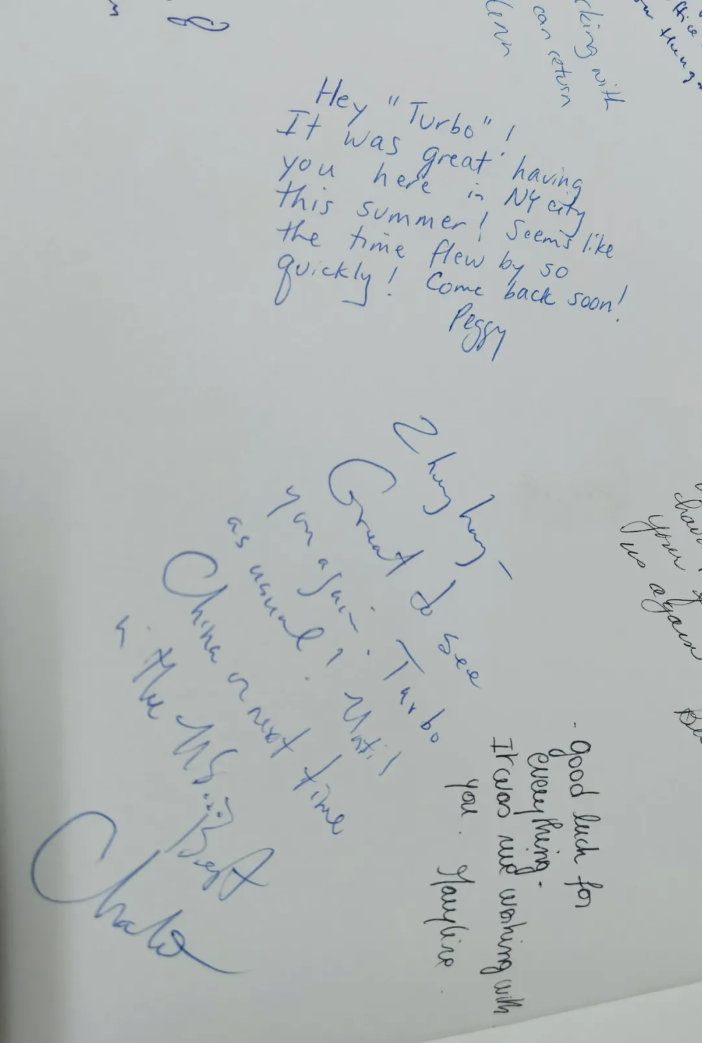 can return
rking with
Hey "Turbo"!
It was great having
you here in NY city
this summer! Seems like
the time flew by so
quickly! Come back soon!
Peggy
Great to see
you again. Turbo
as usual! Until
China or next time
in the US...
Best
your
us again
- good luck for
everything -
It was nice working with
you.